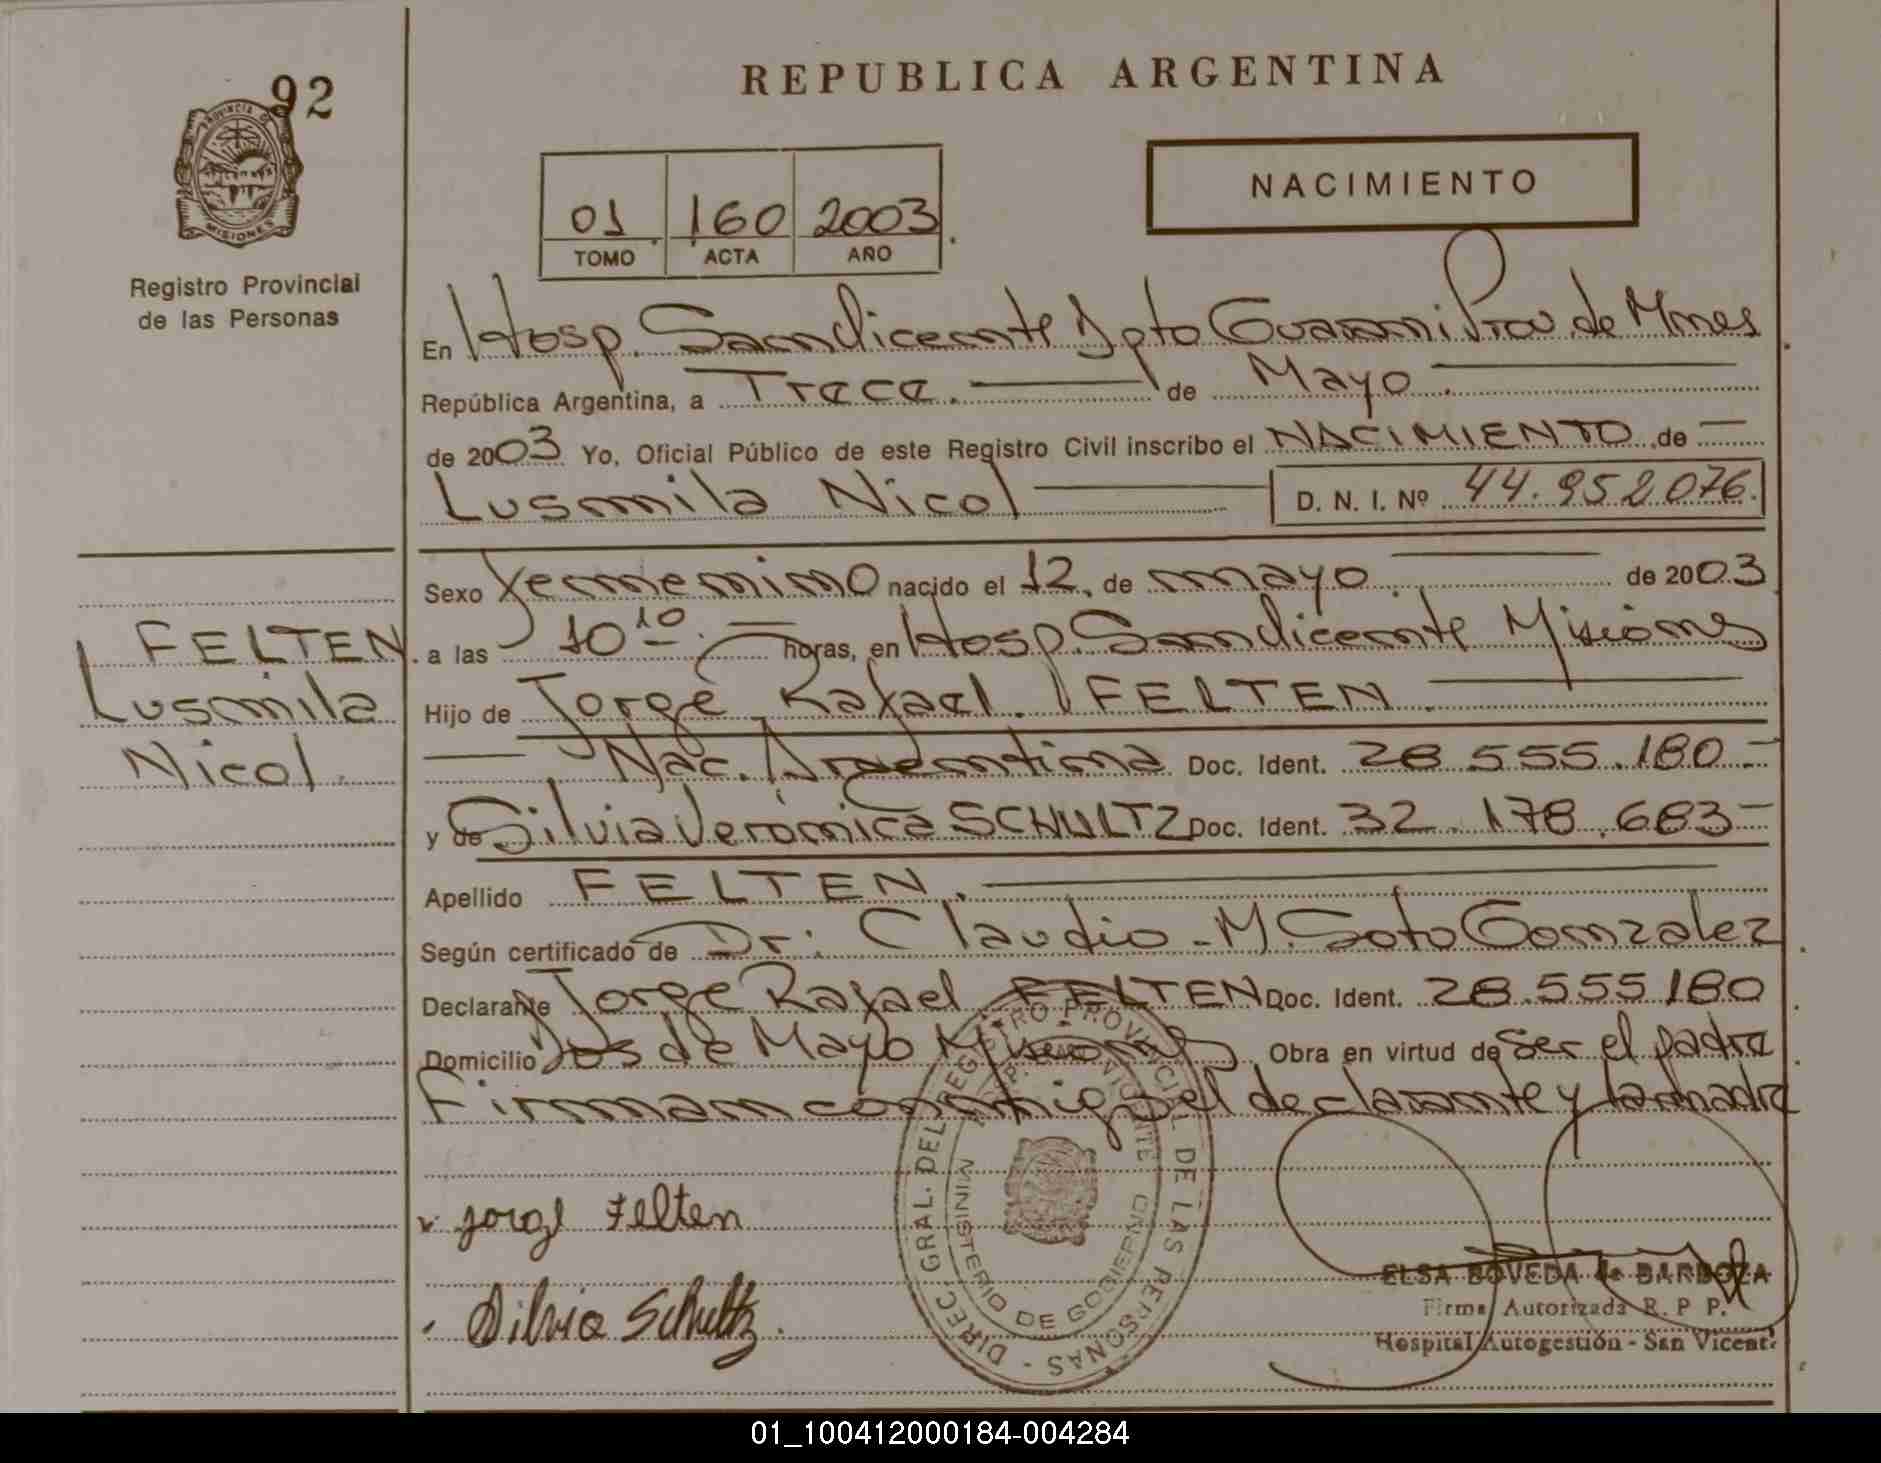 92
PROVINCIA DE
MISIONES
Registro Provincial
de las Personas
REPUBLICA ARGENTINA
01 160 2003
TOMO ACTA AÑO
NACIMIENTO
En Hosp. San Vicente Dpto Guarani Prov. de Mnes
República Argentina, a Trece. de Mayo.
de 2003 Yo, Oficial Público de este Registro Civil inscribo el NACIMIENTO de
Lusmila Nicol D. N. I. Nº 44.952.076.
Sexo Femenino nacido el 12, de mayo. de 2003
a las 10 10. horas, en Hosp. San Vicente Misiones
Hijo de Jorge Rafael. FELTEN.
Nac. Argentina Doc. Ident. 28.555.180.-
y de Silvia Verónica SCHULTZ Doc. Ident. 32.178.683-
Apellido FELTEN.
Según certificado de Dr: Claudio-M. Soto Gonzalez
Declarante Jorge Rafael FELTEN Doc. Ident. 28.555.180
Domicilio Dos de Mayo Misiones Obra en virtud de Ser el padre
Firman conmigo el declarante y la madre
FELTEN
Lusmila
Nicol.
Jorge Felten
Silvia Schultz.
DIREC. GRAL. DEL REGISTRO PROVINCIAL DE LAS PERSONAS -
MINISTERIO DE GOBIERNO
ELSA BOVEDA de BARBOZA
Firma Autorizada R. P. P.
Hospital Autogestión - San Vicente
01_100412000184-004284